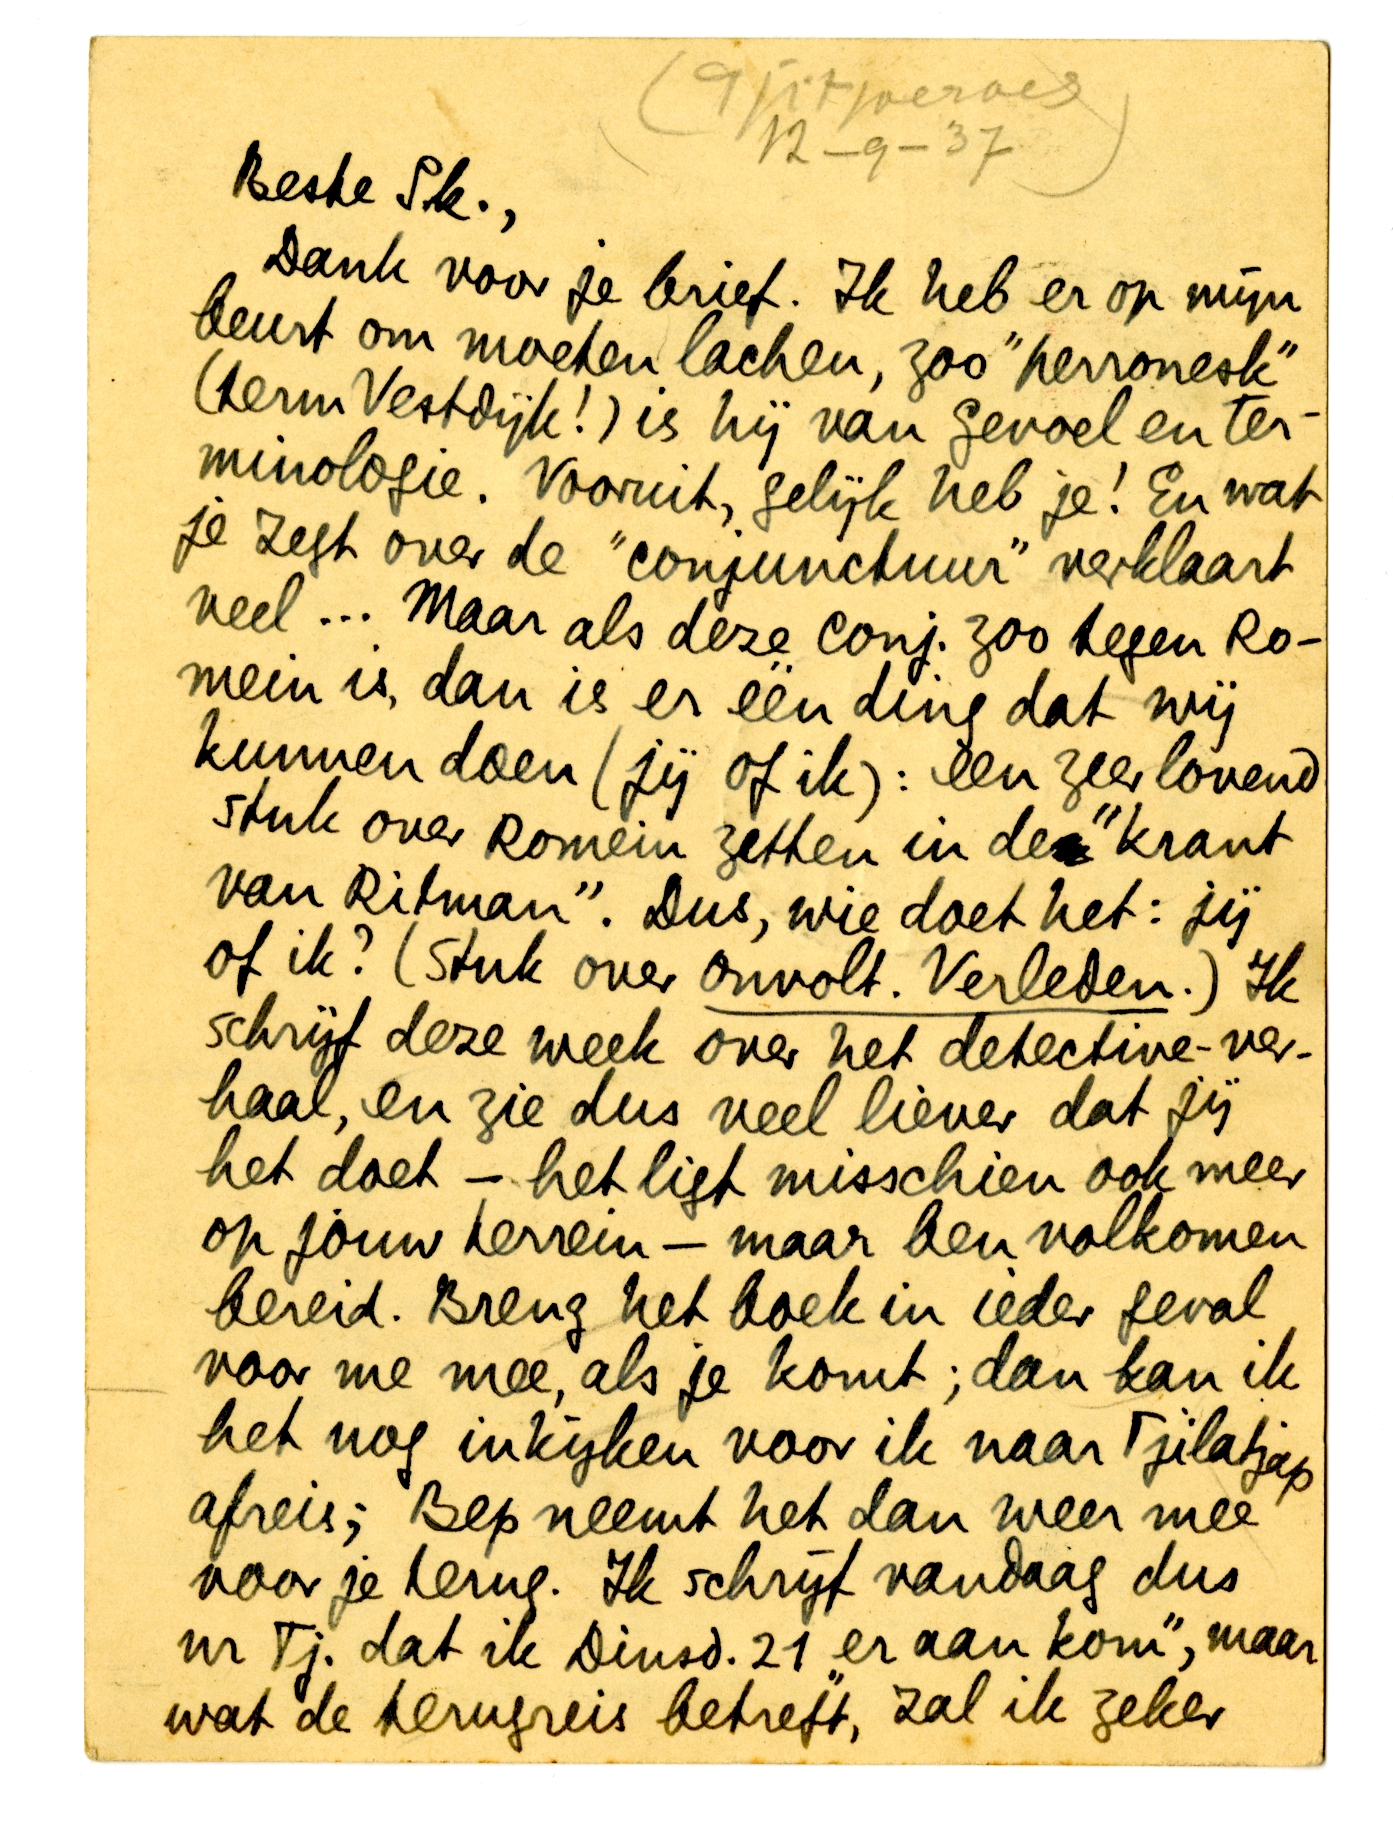 (Tjitjoeroeg
12-9-37)
Beste Sk.,
Dank voor je brief. Ik heb er op mijn
beurt om moeten lachen, zoo "perronesk"
(term Vestdijk!) is hij van gevoel en ter-
minologie. Vooruit, gelijk heb je! En wat
je zegt over de "conjunctuur" verklaart
veel ... Maar als deze conj. zoo tegen Ro-
mein is, dan is er één ding dat wij
kunnen doen (jij of ik): een zeer lovend
stuk over Romein zetten in de "krant
van Ritman". Dus, wie doet het: jij
of ik? (Stuk over Onvolt. Verleden.) Ik
schrijf deze week over het detective-ver-
haal, en zie dus veel liever dat jij
het doet – het ligt misschien ook meer
op jouw terrein – maar ben volkomen
bereid. Breng het boek in ieder geval
voor me mee, als je komt; dan kan ik
het nog inkijken voor ik naar Tjilatjap
afreis; Bep neemt het dan weer mee
voor je terug. Ik schrijf vandaag dus
nr Tj. dat ik Dinsd. 21 "er aan kom", maar
wat de terugreis betreft, zal ik zeker